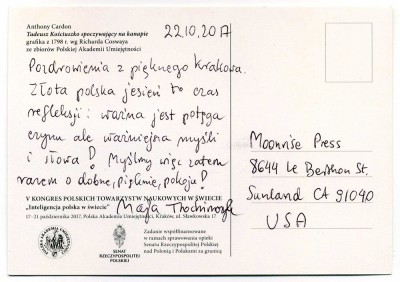 Anthony Cardon
Tadeusz Kościuszko spoczywający na kanapie
grafika z 1798 r. wg Richarda Coswaya
ze zbiorów Polskiej Akademii Umiejętności
22.10.2017
Pozdrowienia z pięknego Krakowa.
Złota polska jesień to czas
refleksji: ważna jest potęga
czynu ale ważniejsza myśli
i słowa! Myślmy więc zatem
razem o dobrze, pięknie, pokoju!
Maja Trochimczyk
Moonrise Press
8644 Le Berthon St.
Sunland CA 91040
USA
V KONGRES POLSKICH TOWARZYSTW NAUKOWYCH W ŚWIECIE
„Inteligencja polska w świecie”
17–21 października 2017, Polska Akademia Umiejętności, Kraków, ul. Sławkowska 17
SENAT
RZECZYPOSPOLITEJ
POLSKIEJ
Zadanie współfinansowane
w ramach sprawowania opieki
Senatu Rzeczypospolitej Polskiej
nad Polonią i Polakami za granicą